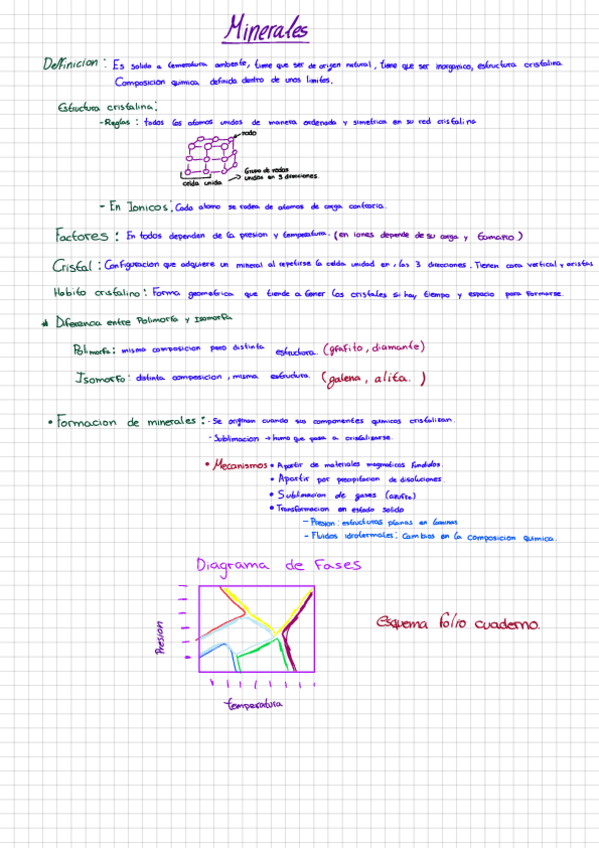 Minerales
Definicion : Es solido a temeratura ambiente, tiene que ser de origen natural, tiene que ser inorganico, estructura cristalina
Composicion quimica definida dentro de unos limites.
Estructura cristalina:
-Reglas : todos los atomos unidos de manera ordenada y simetrica en su red cristalina
nodo
Grupo de nodos
unidos en 3 direcciones.
celda unida
- En Ionicos : Cada atomo se rodea de atomos de carga contraria.
Factores : En todos dependen de la presion y temperatura. (en iones depende de su carga y tamaño)
Cristal : Configuracion que adquiere un mineral al repetirse la celda unidad en las 3 direcciones. Tienen cara vertical y aristas
Habito cristalino : Forma geometrica que tiende a tener los cristales si hay tiempo y espacio para formarse.
* Diferencia entre Polimorfia y Isomorfia
Polimorfia : misma composicion pero distinta estructura. (grafito, diamante)
Isomorfo : distinta composicion, misma estructura. (galena, alita. )
• Formacion de minerales : - Se originan cuando sus componentes quimicos cristalizan.
- Sublimacion → humo que pasa a cristalizarse.
• Mecanismos • Apartir de materiales magmaticos fundidos.
• Apartir por precipitacion de disoluciones.
• Sublimacion de gases (azufre)
• Transformacion en estado solido
- Presion : estructuras planas en laminas
- Fluidos idrotermales : Cambios en la composicion quimica.
Diagrama de Fases
Presion
esquema folio cuaderno.
temperatura